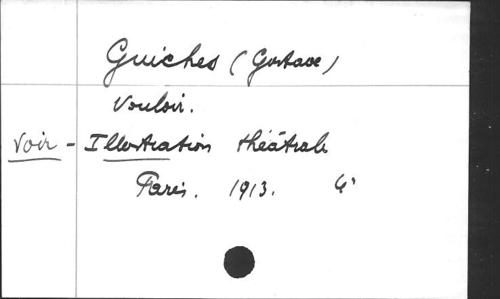 Guiches (Gustave)
Vouloir.
Voir - Illustration théâtrale
Paris. 1913. 4°